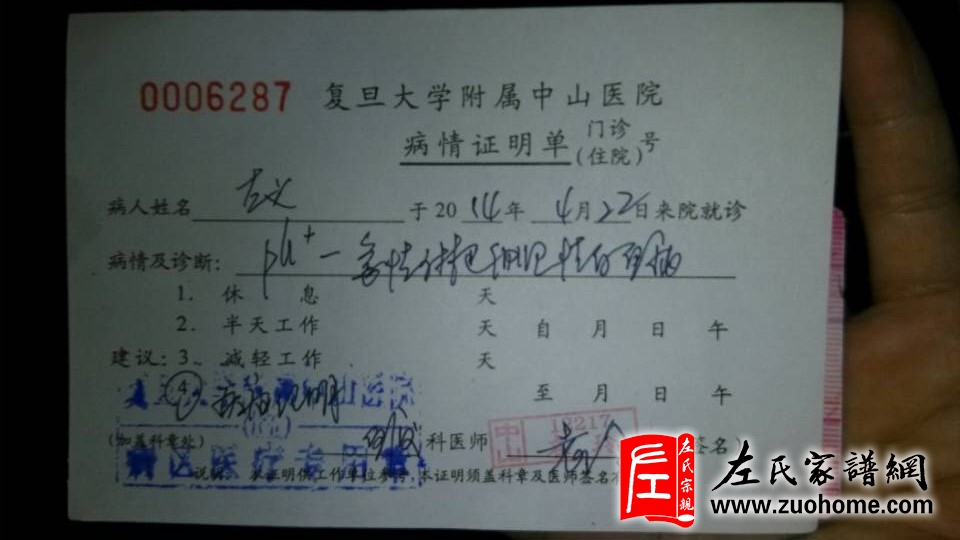 0006287 复旦大学附属中山医院
病情证明单 门诊(住院)号
病人姓名 左义 于2014年4月22日来院就诊
病情及诊断: ph+一急性淋巴细胞性白血病
1. 休 息 天
2. 半天工作 天 自 月 日 午
建议:3. 减轻工作 天
4 病情证明 至 月 日 午
(加盖科章处) 科医师 签名)
说明: 本证明供工作单位参考,本证明须盖科章及医师签名
左氏宗親
左氏家譜網
www.zuohome.com